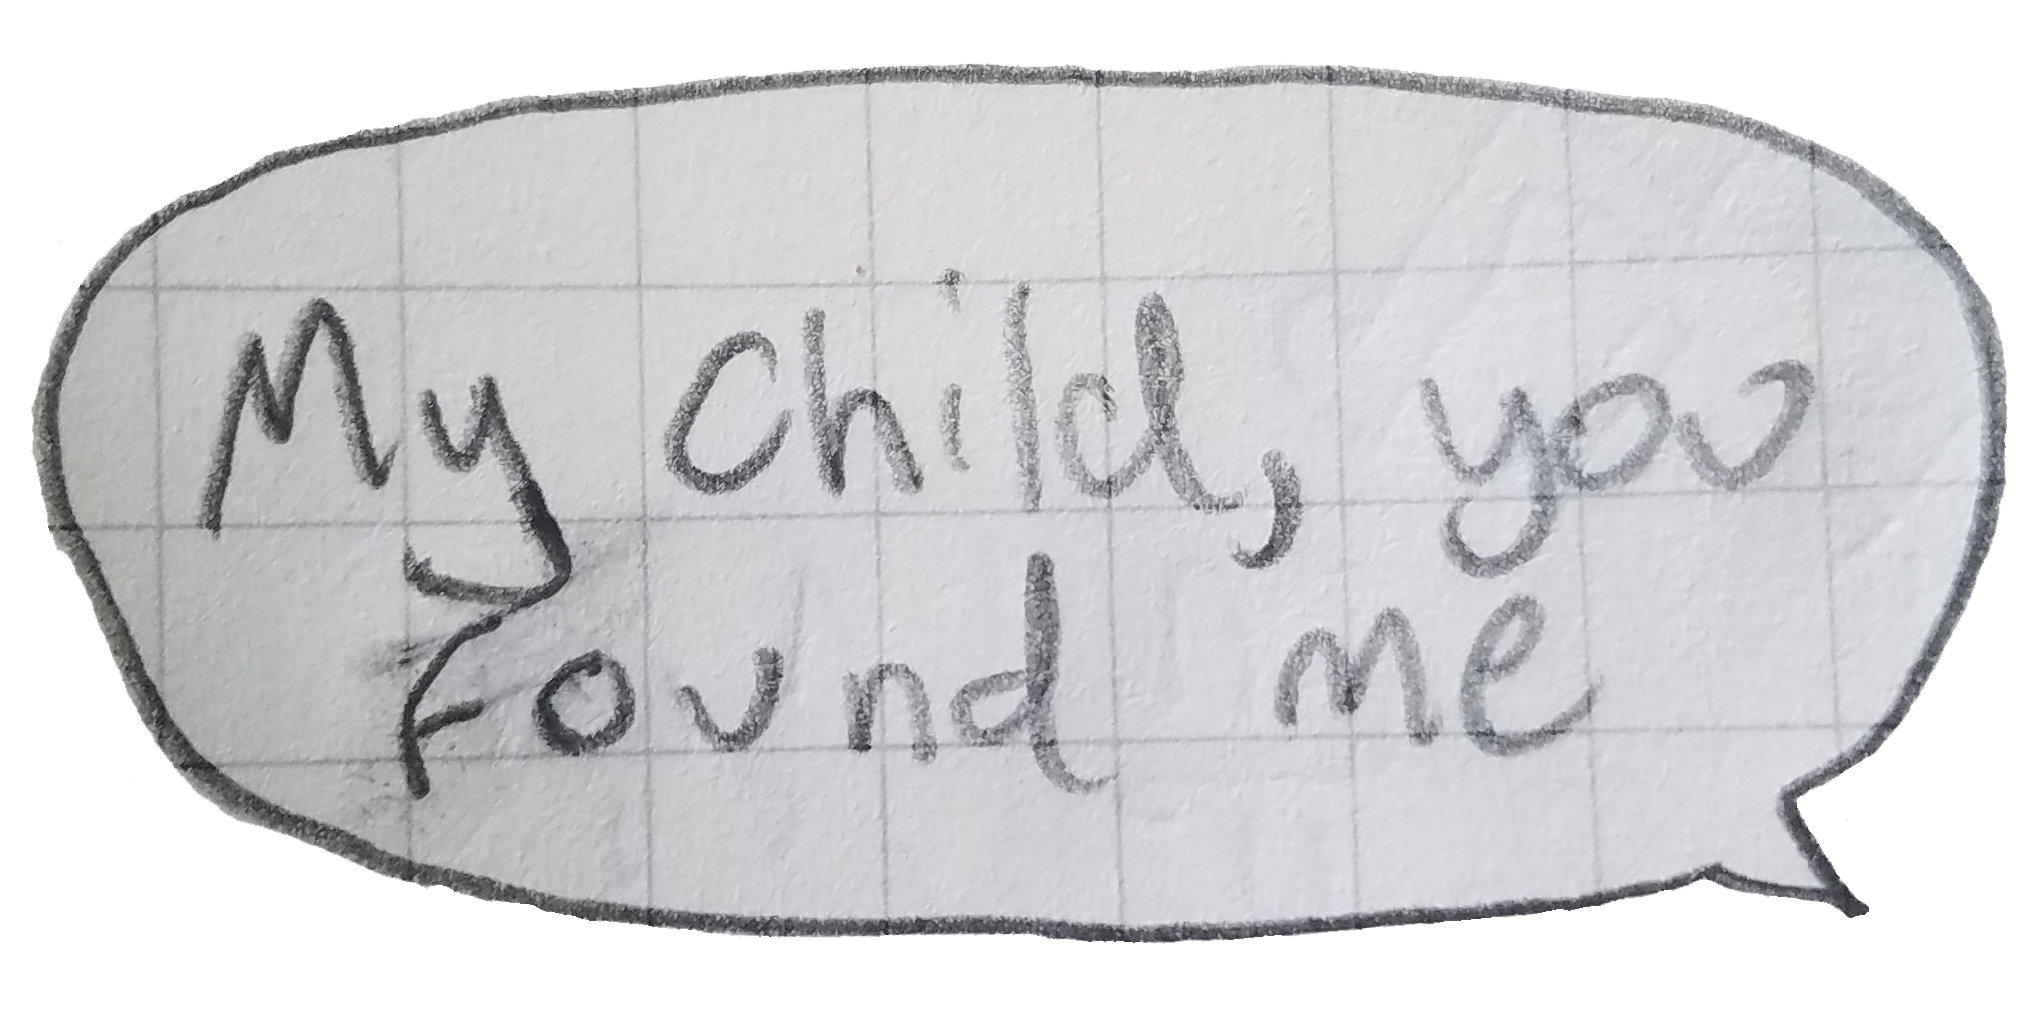 My child, you
Found me